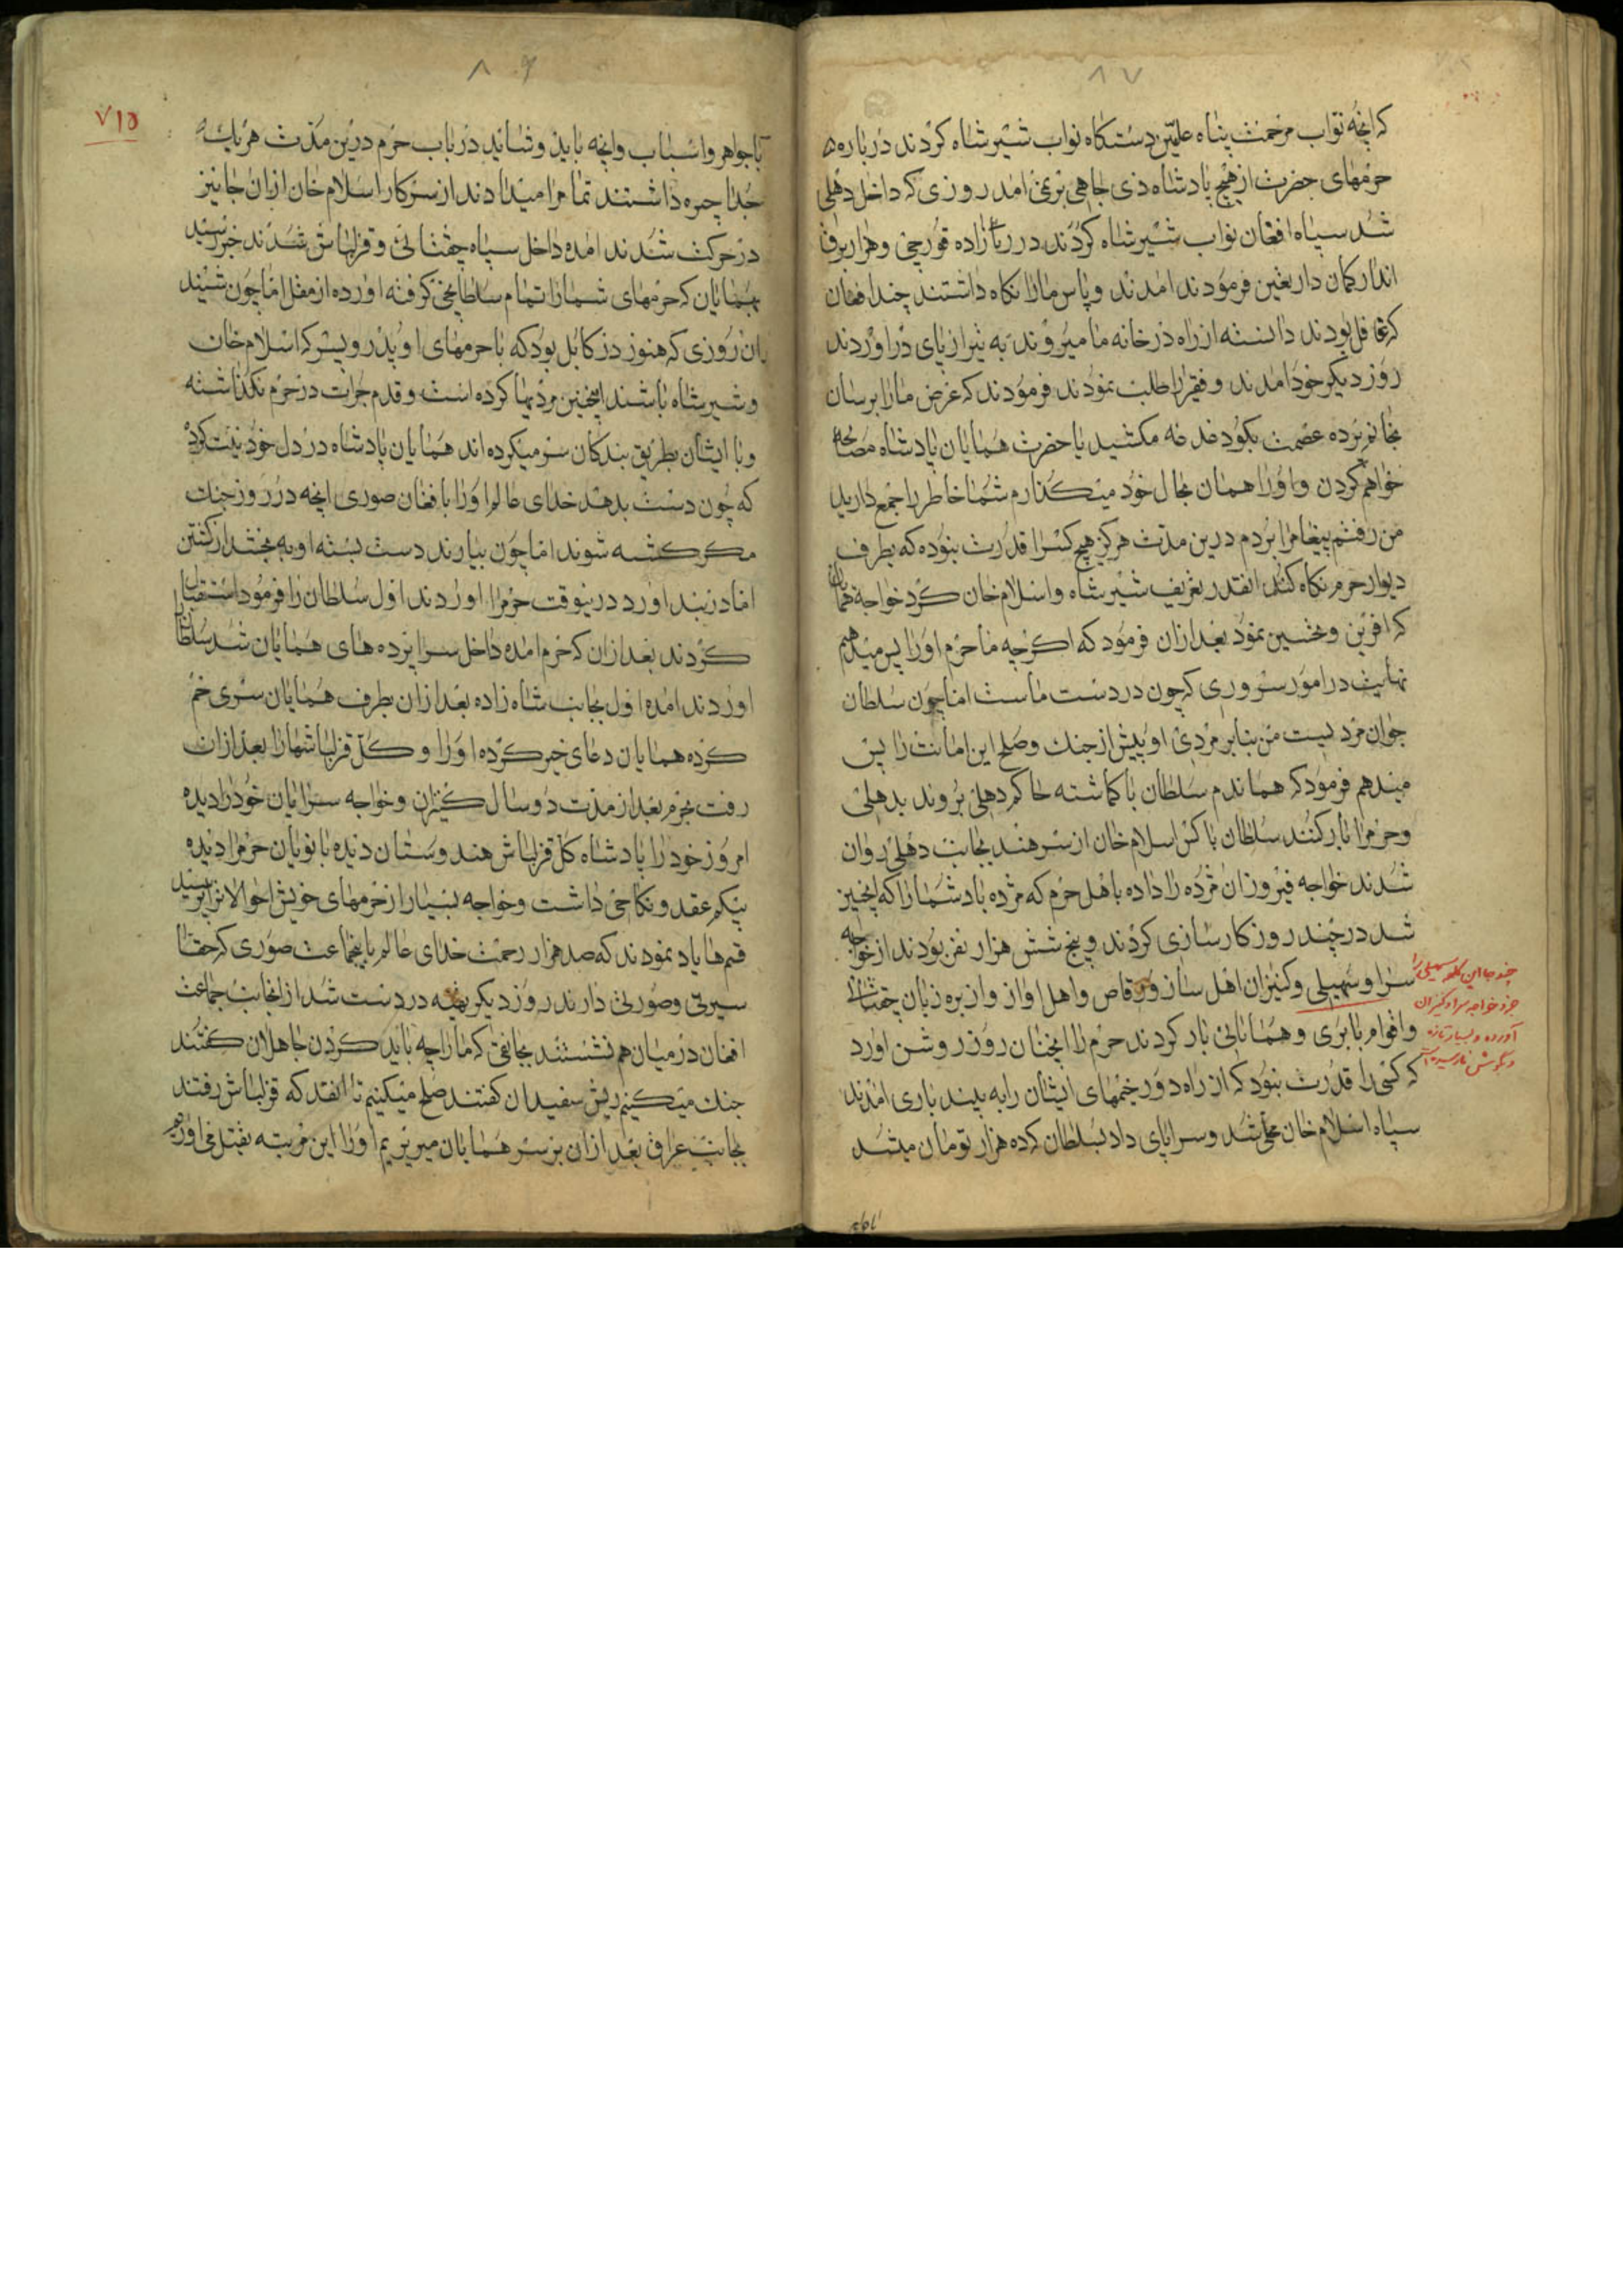 ۸۷
که انچه نواب مرحمت پناه علیین دستکاه نواب شیر شاه کردند در باره
حرمهای حضرت از هیچ پادشاه ذی جاهی برنمی امد روزی که داخل دهلی
شد سپاه افغان نواب شیر شاه کردند در زاده قورچی و هزار برق
انداز کمان دار بغین فرمودند امدند و پاس ما را نکاه داشتند چند افغان
که غافل بودند دانسته از راه در خانه ما میروند به تیر از پای در اوردند
روز دیکر خود امدند و فقیر را طلب نمودند فرمودند که عرض ما را برسان
بخانم پرده عصمت بکو دغدغه مکشید با حضرت همایان پادشاه مصالحه
خواهم کردن و او را همان بحال خود میکذارم شما خاطر را جمع دارید
من رفتم پیغام را بردم درین مدت هرکز هیچ کس را قدرت نبوده که بطرف
دیوار حرم نکاه کند انقدر تعریف شیر شاه و اسلام خان کرد خواجه همایان
که افرین و تحسین نمود بعد ازان فرمود که اکرچه ما حرم او را پس میدهیم
نهایت در امور سروری که چون در دست ماست اما چون سلطان
جوان مردیست من بنابر مردی او پیش از جنک و صلح این امانت را پس
میدهم فرمود که هماندم سلطان با کماشته حاکم دهلی بروند بدهلی
و حرم را بار کنند سلطان با کس اسلام خان از سرهند بجانب دهلی روان
شدند خواجه فیروزان مژده را داده باهل حرم که مژده باد شما را که اینچنین
شد در چند روز کارسازی کردند و پنج شش هزار نفر بودند از خواجه
سرا و سهیلی و کنیزان اهل ساز و رقاص و اهل اواز و از بره زبان چغتائی
و اقوام بابری و همایانی بار کردند حرم را انچنان روز روشن اورد
که کسی را قدرت نبود که از راه دور خیمهای ایشان را به بیند باری امدند
سپاه اسلام خان محلی شد و سراپای داد بسلطان که ده هزار تومان میشد
چند جا این کلمه سهیلی را
جزو خواجه سرا و کنیزان
آورده و بسیار تازه
و بگوش نارسیده است
۸۶
۷۱۵
با جواهر و اسباب و انچه باید و شاید در باب حرم درین مدت هر یک
جدا جیره داشتند تمام را میدادند از سرکار اسلام خان ازان جا نیز
در حرکت شدند امده داخل سپاه چغتائی و قزلباش شدند خبر رسید
بهمایان که حرمهای شما را تمام سلطان کرفته اورده از مغل اما چون شنید
ان روزی که هنوز در کابل بود که با حرمهای او پدر و پسر که اسلام خان
و شیر شاه باشند اینچنین مردیها کرده است و قدم جرات در حرم نکذاشته
و با ایشان بطریق بندکان سر میکرده اند همایان پادشاه در دل خود نیت کرد
که چون دست بدهد خدای عالم او را با افغان صوری انچه در روز جنک
مکر کشته شوند اما چون بیارند دست بسته او به بخشد از کشتن
اما در بند اورد درینوقت حرم را اوردند اول سلطان را فرمود استقبال
کردند بعد ازان که حرم امده داخل سراپرده های همایان شد سلطان را
اوردند امده اول بجانب شاه زاده بعد ازان بطرف همایان سری خم
کرده همایان دعای خیر کرده او را و کل قزلباشها را بعد ازان
رفت بحرم بعد از مدت دو سال کنیزان و خواجه سرایان خود را دیده
امروز خود را پادشاه کل قزلباش هند وستان دیده بانویان حرم را دیده
بیکم عقد و نکاحی داشت و خواجه بسیار از حرمهای خویش احوالات پرسید
قسمها یاد نمودند که صد هزار رحمت خدای عالم باینجماعت صوری که حقا
سیرتی و صورتی دارند روز دیکر بهیه در دست شد از انجانب جماعت
افغان در میان هم نشستند بجانقی که ما را چه باید کردن جاهلان کفتند
جنک میکنیم ریش سفیدان کفتند صلح میکنیم تا انقدر که قزلباش رفتند
بجانب عراق بعد ازان بر سر همایان میریزیم او را این مرتبه بقتل می اوریم